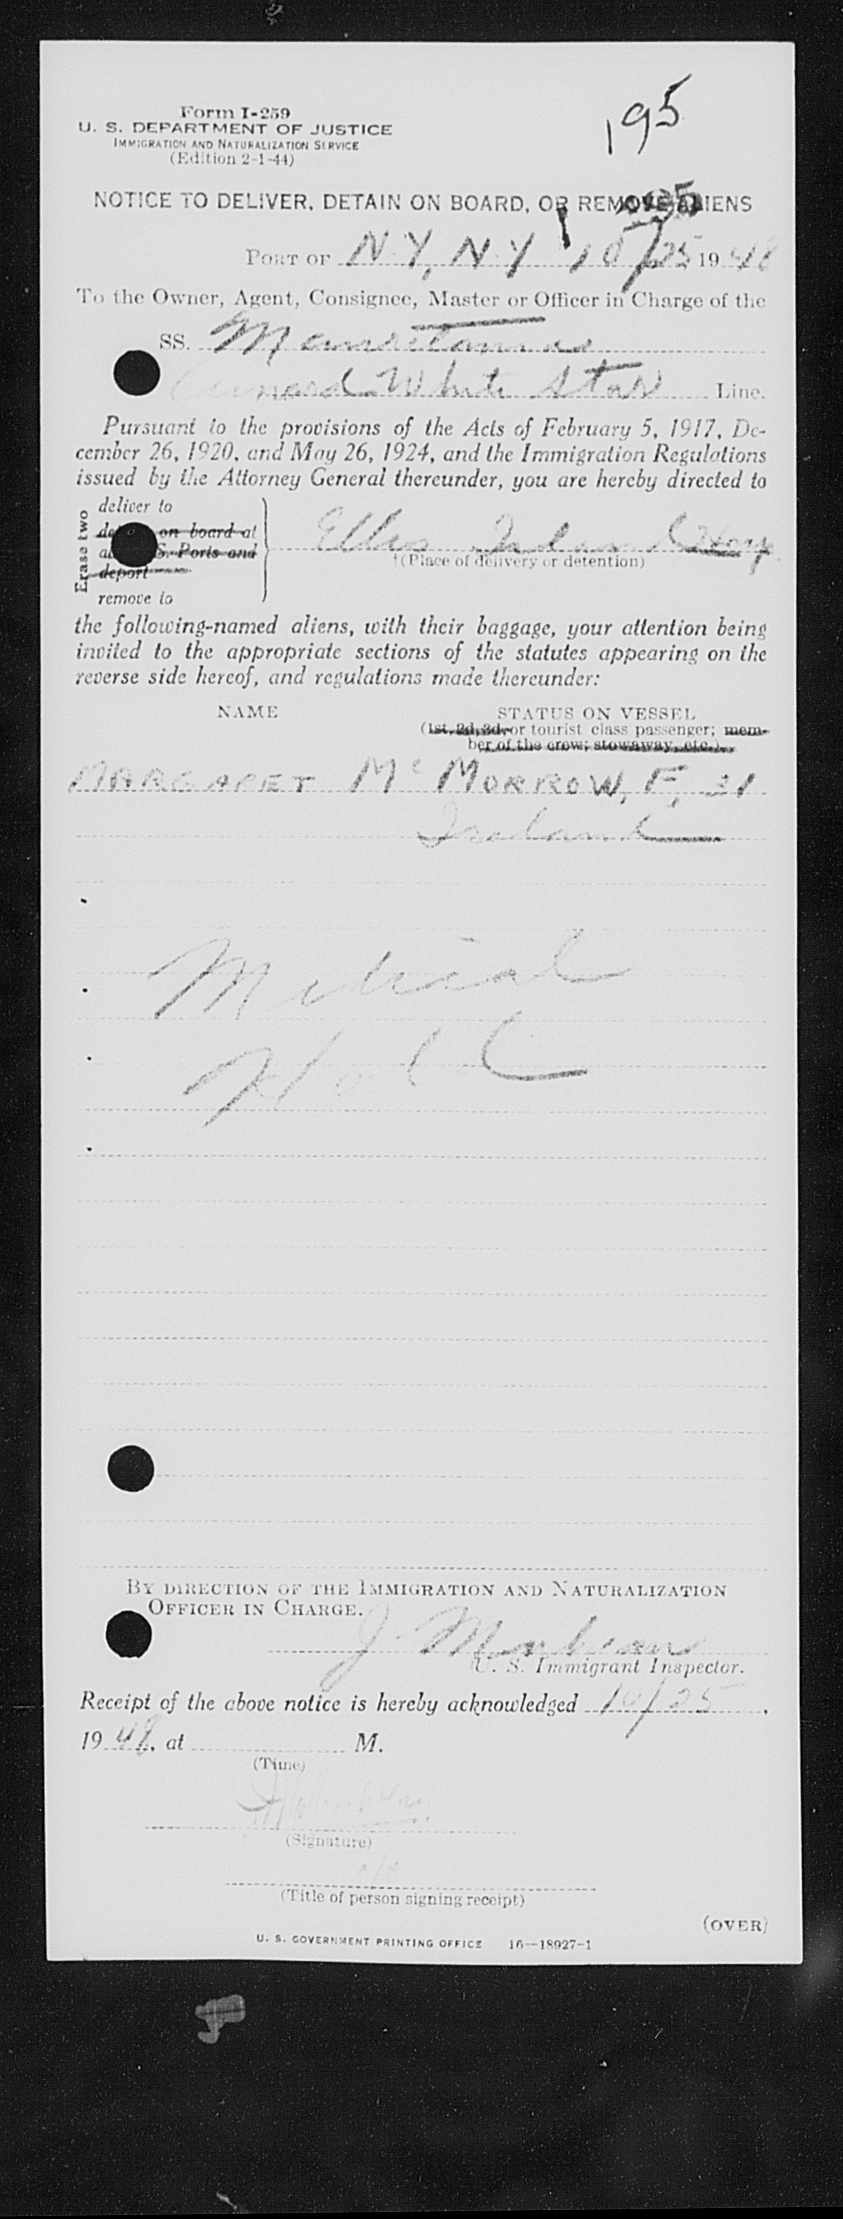 Form I-259
U. S. DEPARTMENT OF JUSTICE
IMMIGRATION AND NATURALIZATION SERVICE
(Edition 2-1-44)
195
NOTICE TO DELIVER, DETAIN ON BOARD, OR REMOVE ALIENS
PORT OF N.Y, N.Y 10/25 1948
To the Owner, Agent, Consignee, Master or Officer in Charge of the
SS. Mauretania
Cunard White Star Line.
Pursuant to the provisions of the Acts of February 5, 1917, De-
cember 26, 1920, and May 26, 1924, and the Immigration Regulations
issued by the Attorney General thereunder, you are hereby directed to
Erase two
deliver to
on board at
S. Ports and
deport
remove to
Ellis Island Hosp
†(Place of delivery or detention)
the following-named aliens, with their baggage, your attention being
invited to the appropriate sections of the statutes appearing on the
reverse side hereof, and regulations made thereunder:
NAME STATUS ON VESSEL
(1st, 2d, 3d, or tourist class passenger; mem-
ber of the crew; stowaway, etc.)
MARGARET McMORROW, F, 31
Ireland
Medical
Hold
BY DIRECTION OF THE IMMIGRATION AND NATURALIZATION
OFFICER IN CHARGE.
J.
U. S. Immigrant Inspector.
Receipt of the above notice is hereby acknowledged 10/25,
1948, at M.
(Time)
(Signature)
(Title of person signing receipt)
(OVER)
U. S. GOVERNMENT PRINTING OFFICE 16—18927-1